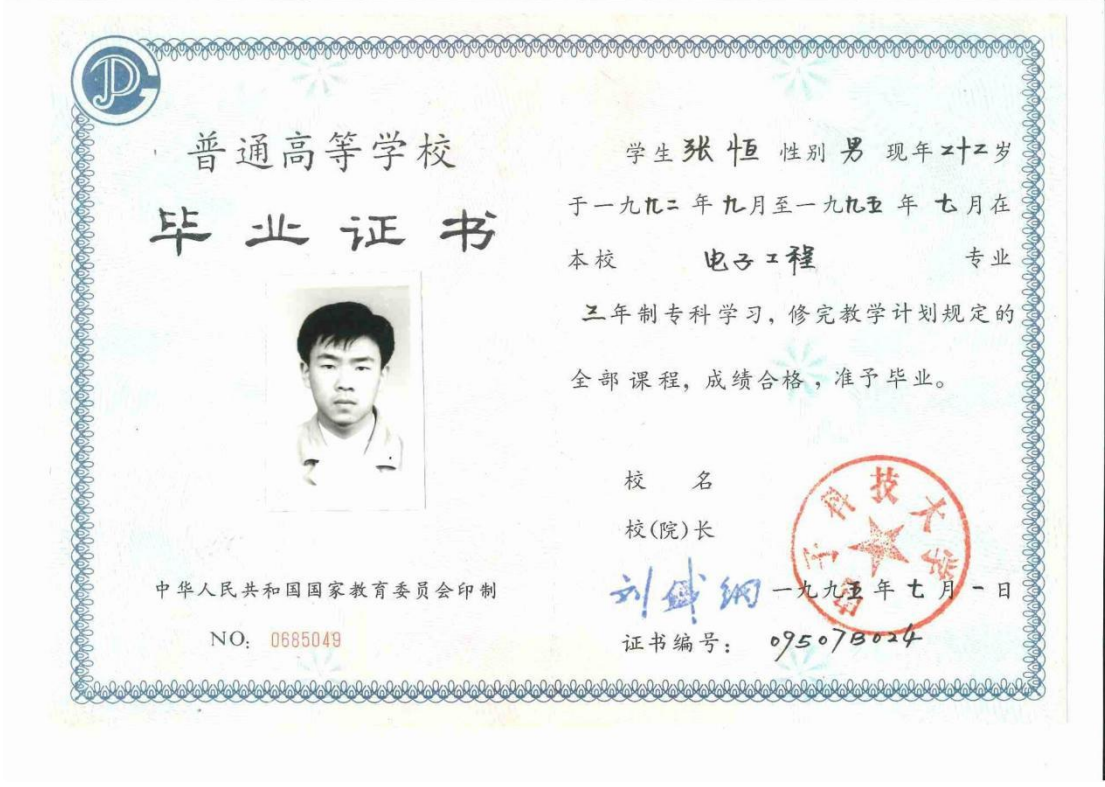 普通高等学校
毕业证书
中华人民共和国国家教育委员会印制
NO: 0685049
学生 张恒 性别 男 现年二十二岁
于一九九二年九月至一九九五年七月在
本校 电子工程 专业
三年制专科学习,修完教学计划规定的
全部课程,成绩合格,准予毕业。
校 名
电子科技大学
校(院)长
刘盛纲
一九九五年七月一日
证书编号: 09507B024